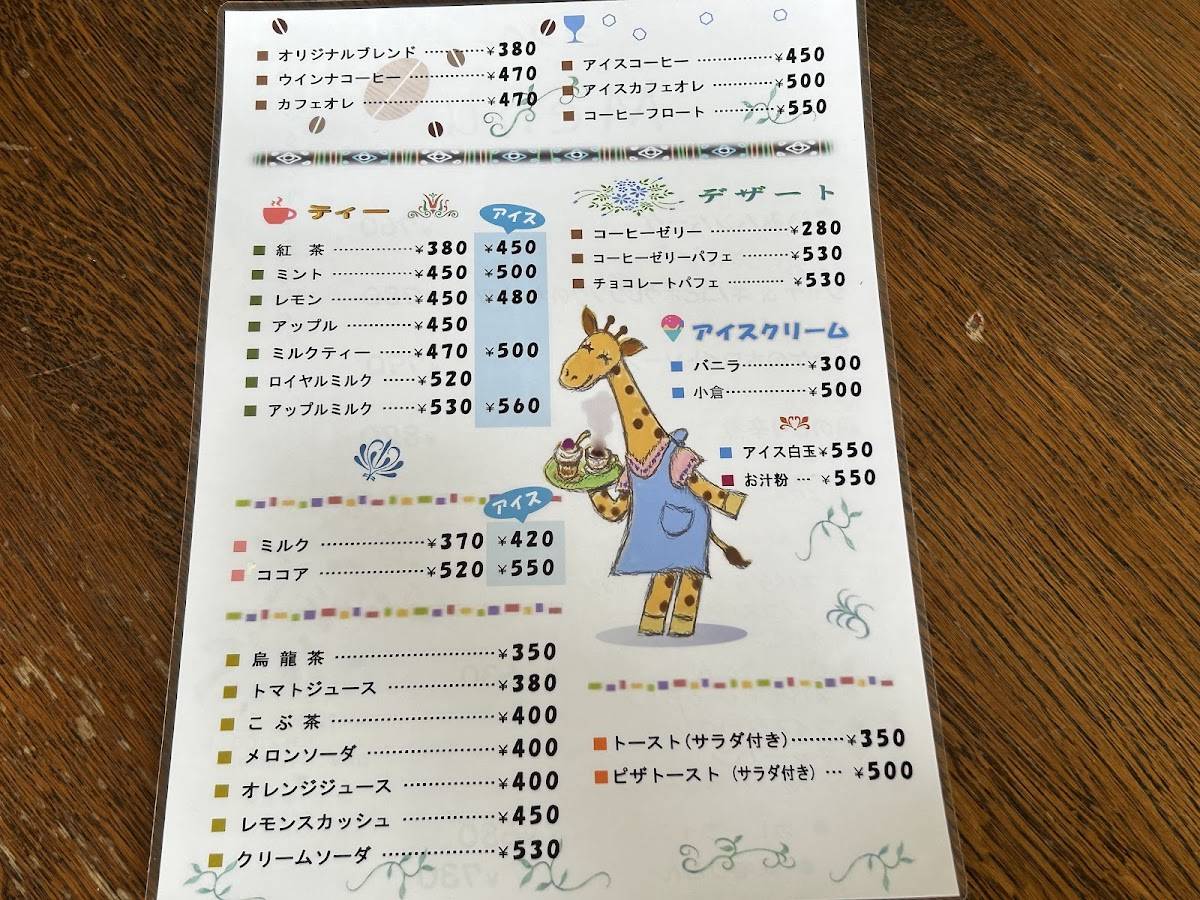 オリジナルブレンド …………¥380
ウインナコーヒー …………¥470
カフェオレ …………………¥470
アイスコーヒー ……………¥450
アイスカフェオレ …………¥500
コーヒーフロート …………¥550
ティー
アイス
紅 茶 ……………¥380 ¥450
ミント ……………¥450 ¥500
レモン ……………¥450 ¥480
アップル …………¥450
ミルクティー ……¥470 ¥500
ロイヤルミルク ……¥520
アップルミルク ……¥530 ¥560
アイス
ミルク …………………¥370 ¥420
ココア …………………¥520 ¥550
烏 龍 茶 …………………………¥350
トマトジュース …………………¥380
こ ぶ 茶 …………………………¥400
メロンソーダ ……………………¥400
オレンジジュース ………………¥400
レモンスカッシュ ………………¥450
クリームソーダ …………………¥530
デザート
コーヒーゼリー ……………¥280
コーヒーゼリーパフェ ………¥530
チョコレートパフェ ………… ¥530
アイスクリーム
バニラ…………¥300
小倉……………¥500
アイス白玉¥550
お汁粉 … ¥550
トースト(サラダ付き)………¥350
ピザトースト (サラダ付き) … ¥500